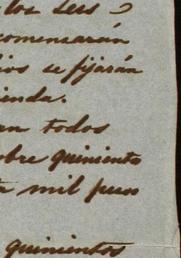 los seis
comensarán
ios se fijarán
ienda.
an todos
obre quiniento
ta mil pesos
quinientos